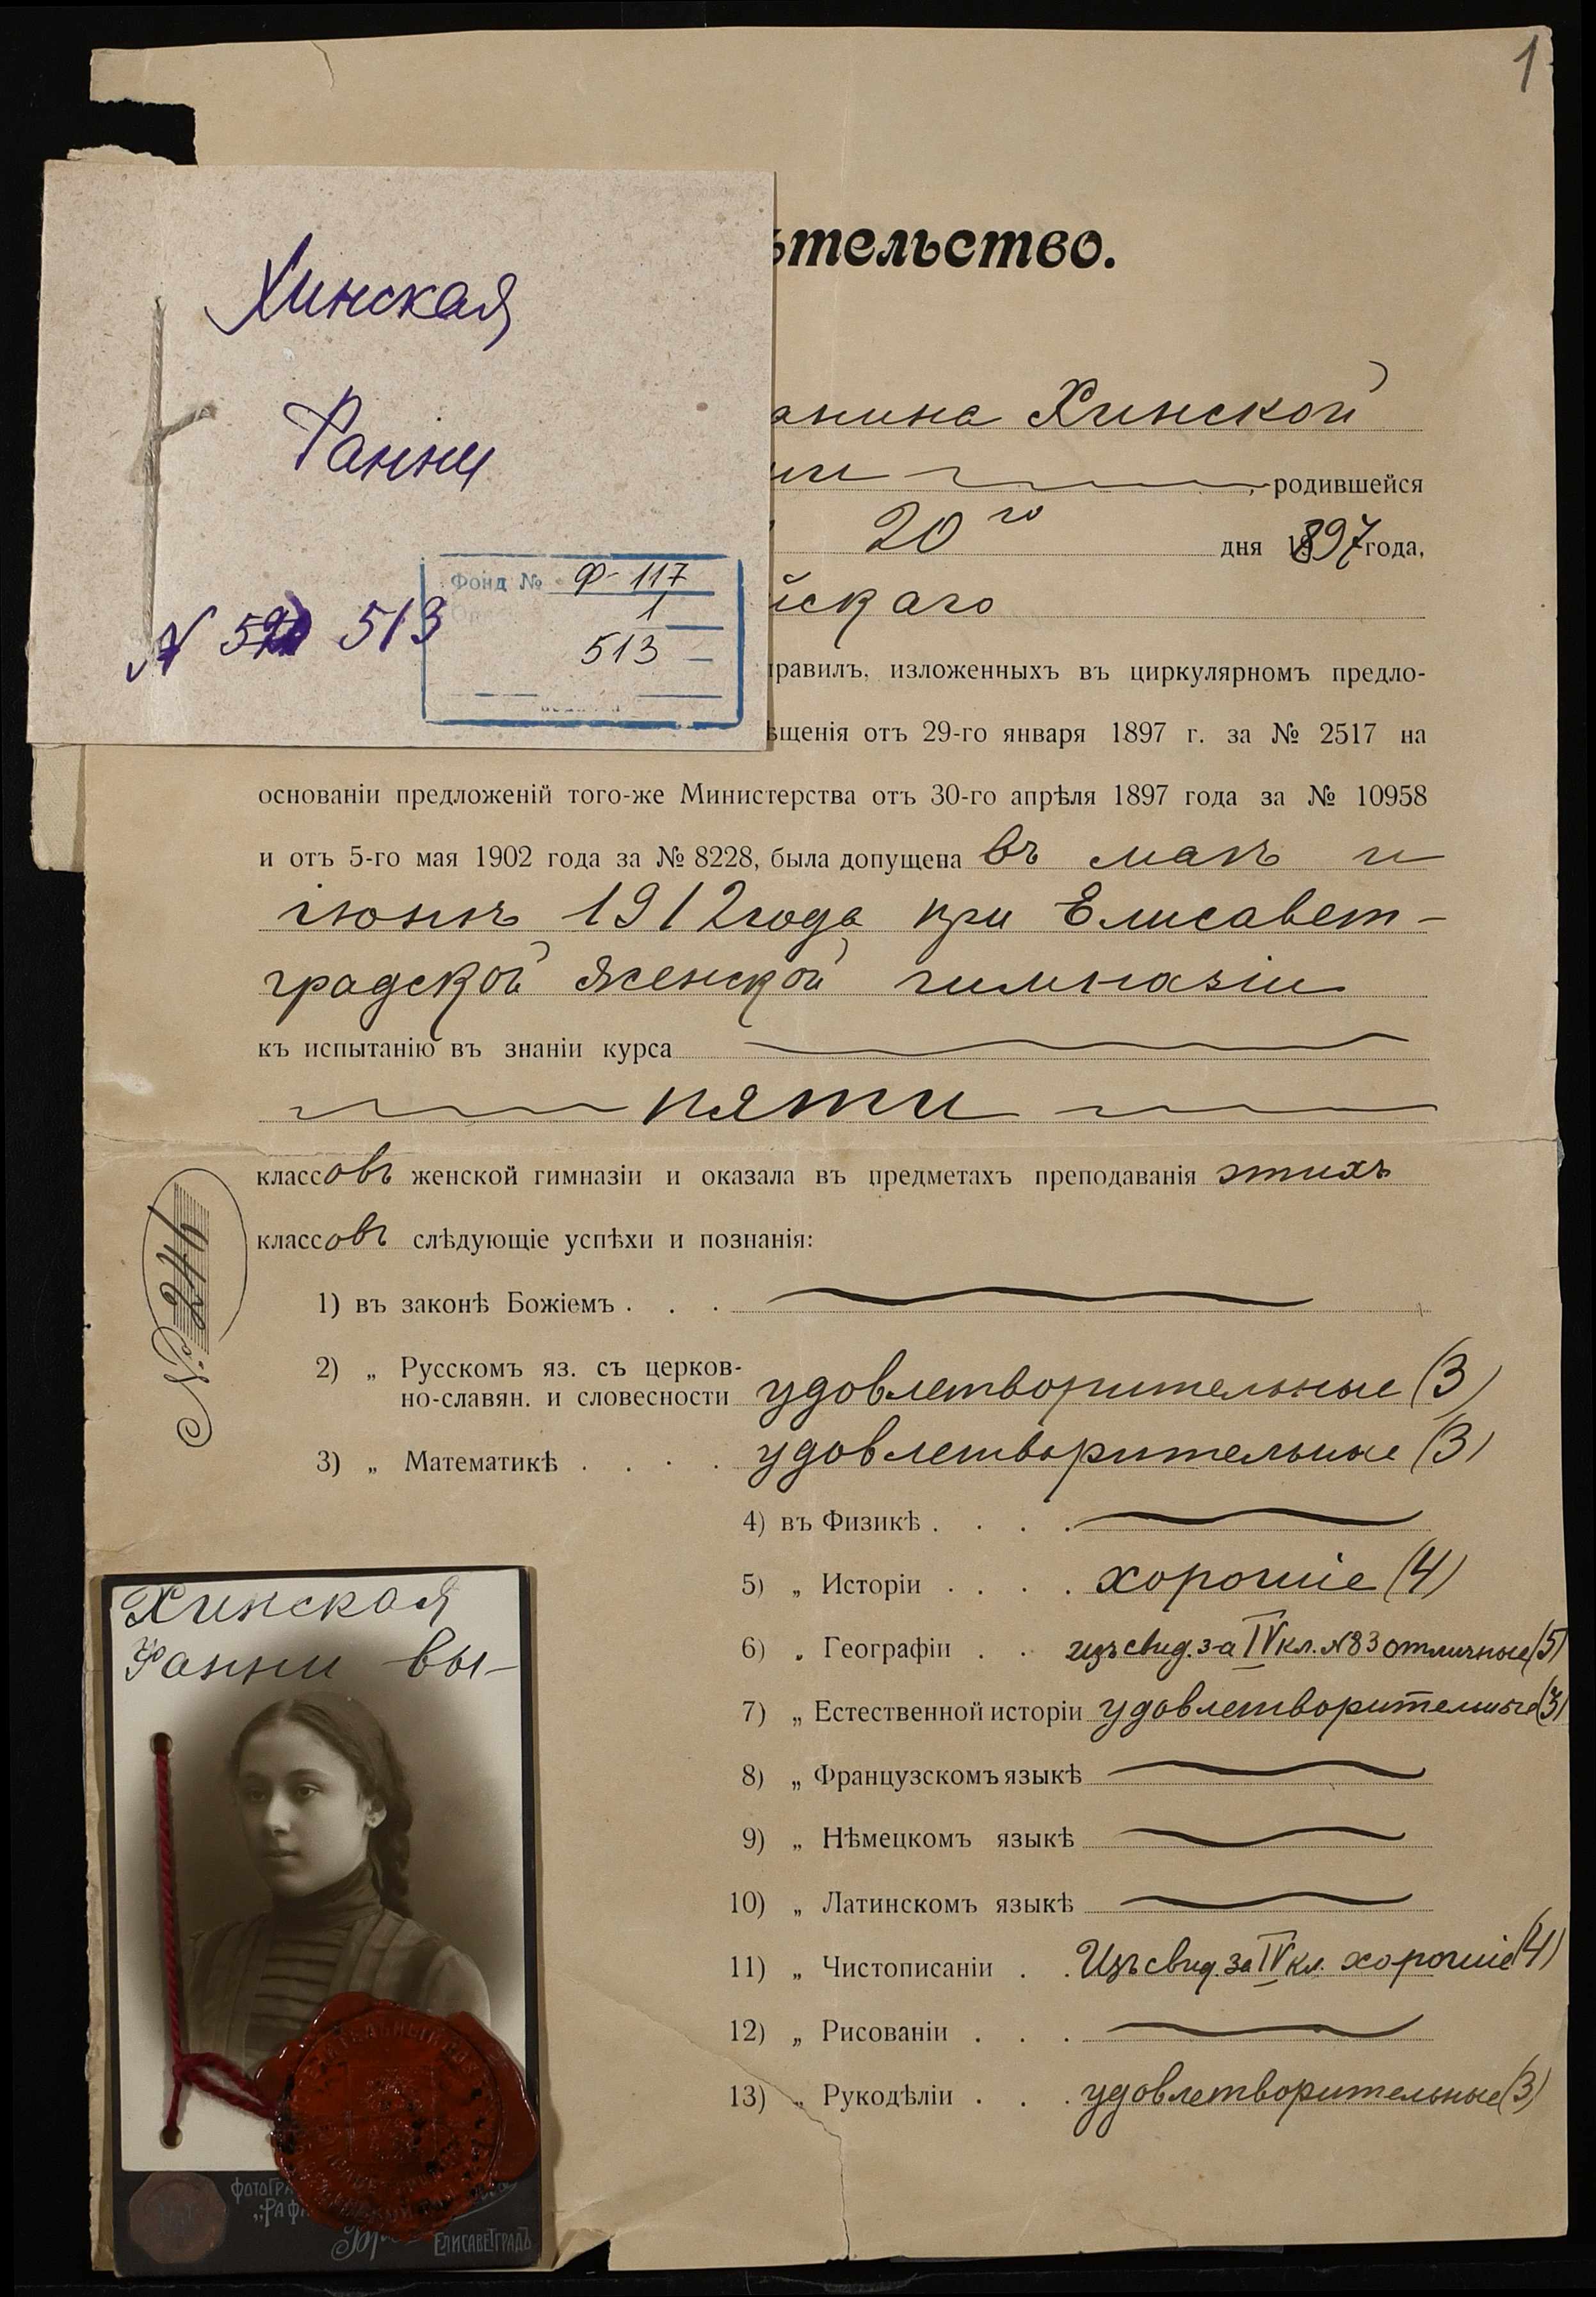 1
ѣтельство.
Хинская
Фанни
N 513
Фонд № Ф-117
1
513
анина Хинской
родившейся
20го дня 1897 года,
йскаго
правилъ, изложенныхъ въ циркулярномъ предло-
ѣщенія отъ 29-го января 1897 г. за № 2517 на
основаніи предложеній того-же Министерства отъ 30-го апрѣля 1897 года за № 10958
и отъ 5-го мая 1902 года за № 8228, была допущена въ маѣ и
іюнѣ 1912 года при Елисавет-
градской женской гимназіи
къ испытанію въ знаніи курса
пяти
классовъ женской гимназіи и оказала въ предметахъ преподаванія этихъ
классовъ слѣдующіе успѣхи и познанія:
1) въ законѣ Божіемъ . . .
2) „ Русскомъ яз. съ церков-
но-славян. и словесности удовлетворительные (3)
3) „ Математикѣ . . . . удовлетворительные (3)
4) въ Физикѣ . . . .
5) „ Исторіи . . . . хорошіе (4)
6) „ Географіи . . изъ свид. за IV кл. N83 отличные (5)
7) „ Естественной исторіи удовлетворительные (3)
8) „ Французскомъ языкѣ
9) „ Нѣмецкомъ языкѣ
10) „ Латинскомъ языкѣ
11) „ Чистописаніи . . Изъ свид. за IV кл. хорошіе (4)
12) „ Рисованіи . . .
13) „ Рукодѣліи . . . удовлетворительные (3)
Хинская
Фанни вы-
ЕлисаветГрадъ